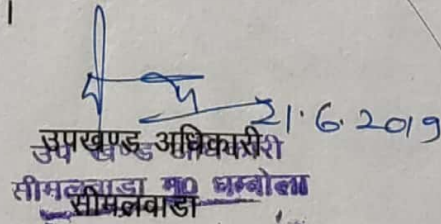 21.6.2019
उपखण्ड अधिकारी
उप खण्ड अधिकारी
सीमलवाडा मु0 धम्बोला
सीमलवाडा